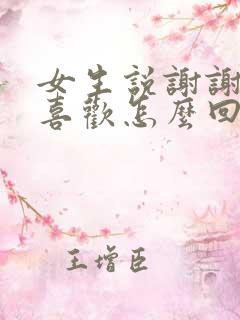 女生説謝謝
喜歡怎麼回
王增臣